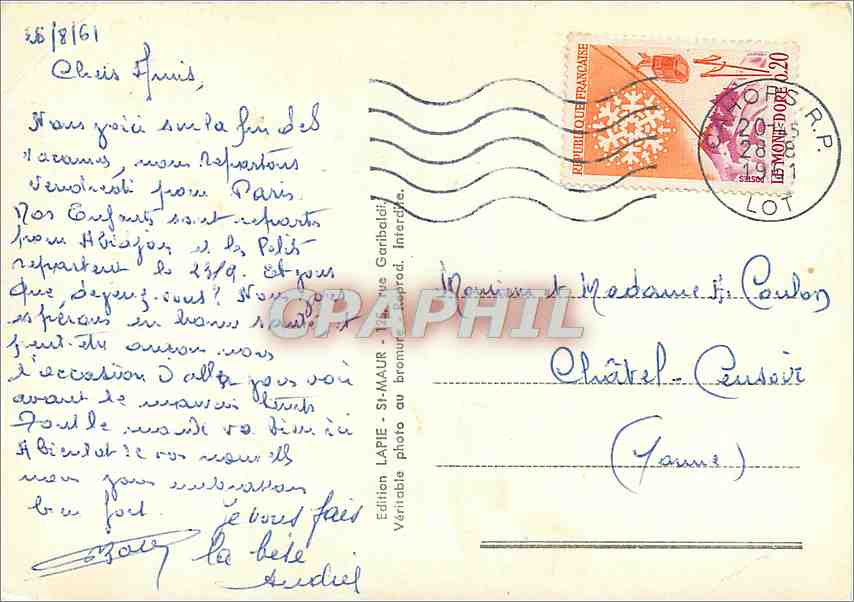 26/8/61
Cheis Amis,
Nous voici sur la fin des
vacances, nous repartons
Vendredi pour Paris.
Nos Enfants sont repartis
pour Abidjan et les Petits
repartent le 23/9. Et vous
que devenez-vous? Nous vous
espérons en bonne santé et
peut-être aurons nous
l'occasion d'aller vous voir
avant le mauvais temps
Tout le monde va bien ici
A bientôt de vos nouvelles
nous vous embrassons
bien fort. je vous fais
la bise
REPUBLIQUE FRANÇAISE
LE MONT-DORE 0,20
POSTES
CAHORS R.P.
20H45
28-8
1961
LOT
Monsieur et Madame Coulon
Châtel-Censoir
(Yonne)
Edition LAPIE - St-MAUR - rue Garibaldi.
Véritable photo au bromure - Reprod. Interdite.
CPAPHIL